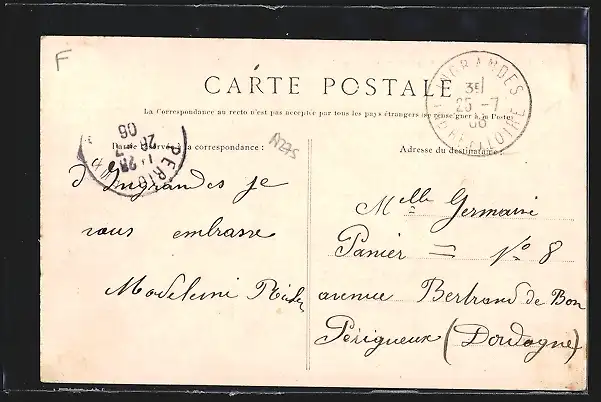 F
CARTE POSTALE
La Correspondance au recto n'est pas acceptée par tous les pays étrangers (se renseigner à la Poste)
Partie réservée à la correspondance :
Adresse du destinataire :
INGRANDES
INDRE-ET-LOIRE
3E
25 -7
06
PERIGUEUX
26 -7
06
A2275
d'Ingrandes je
vous embrasse
Madeleine
Melle Germaine
Panier = No 8
avenue Bertrand de Born
Périgueux (Dordogne)